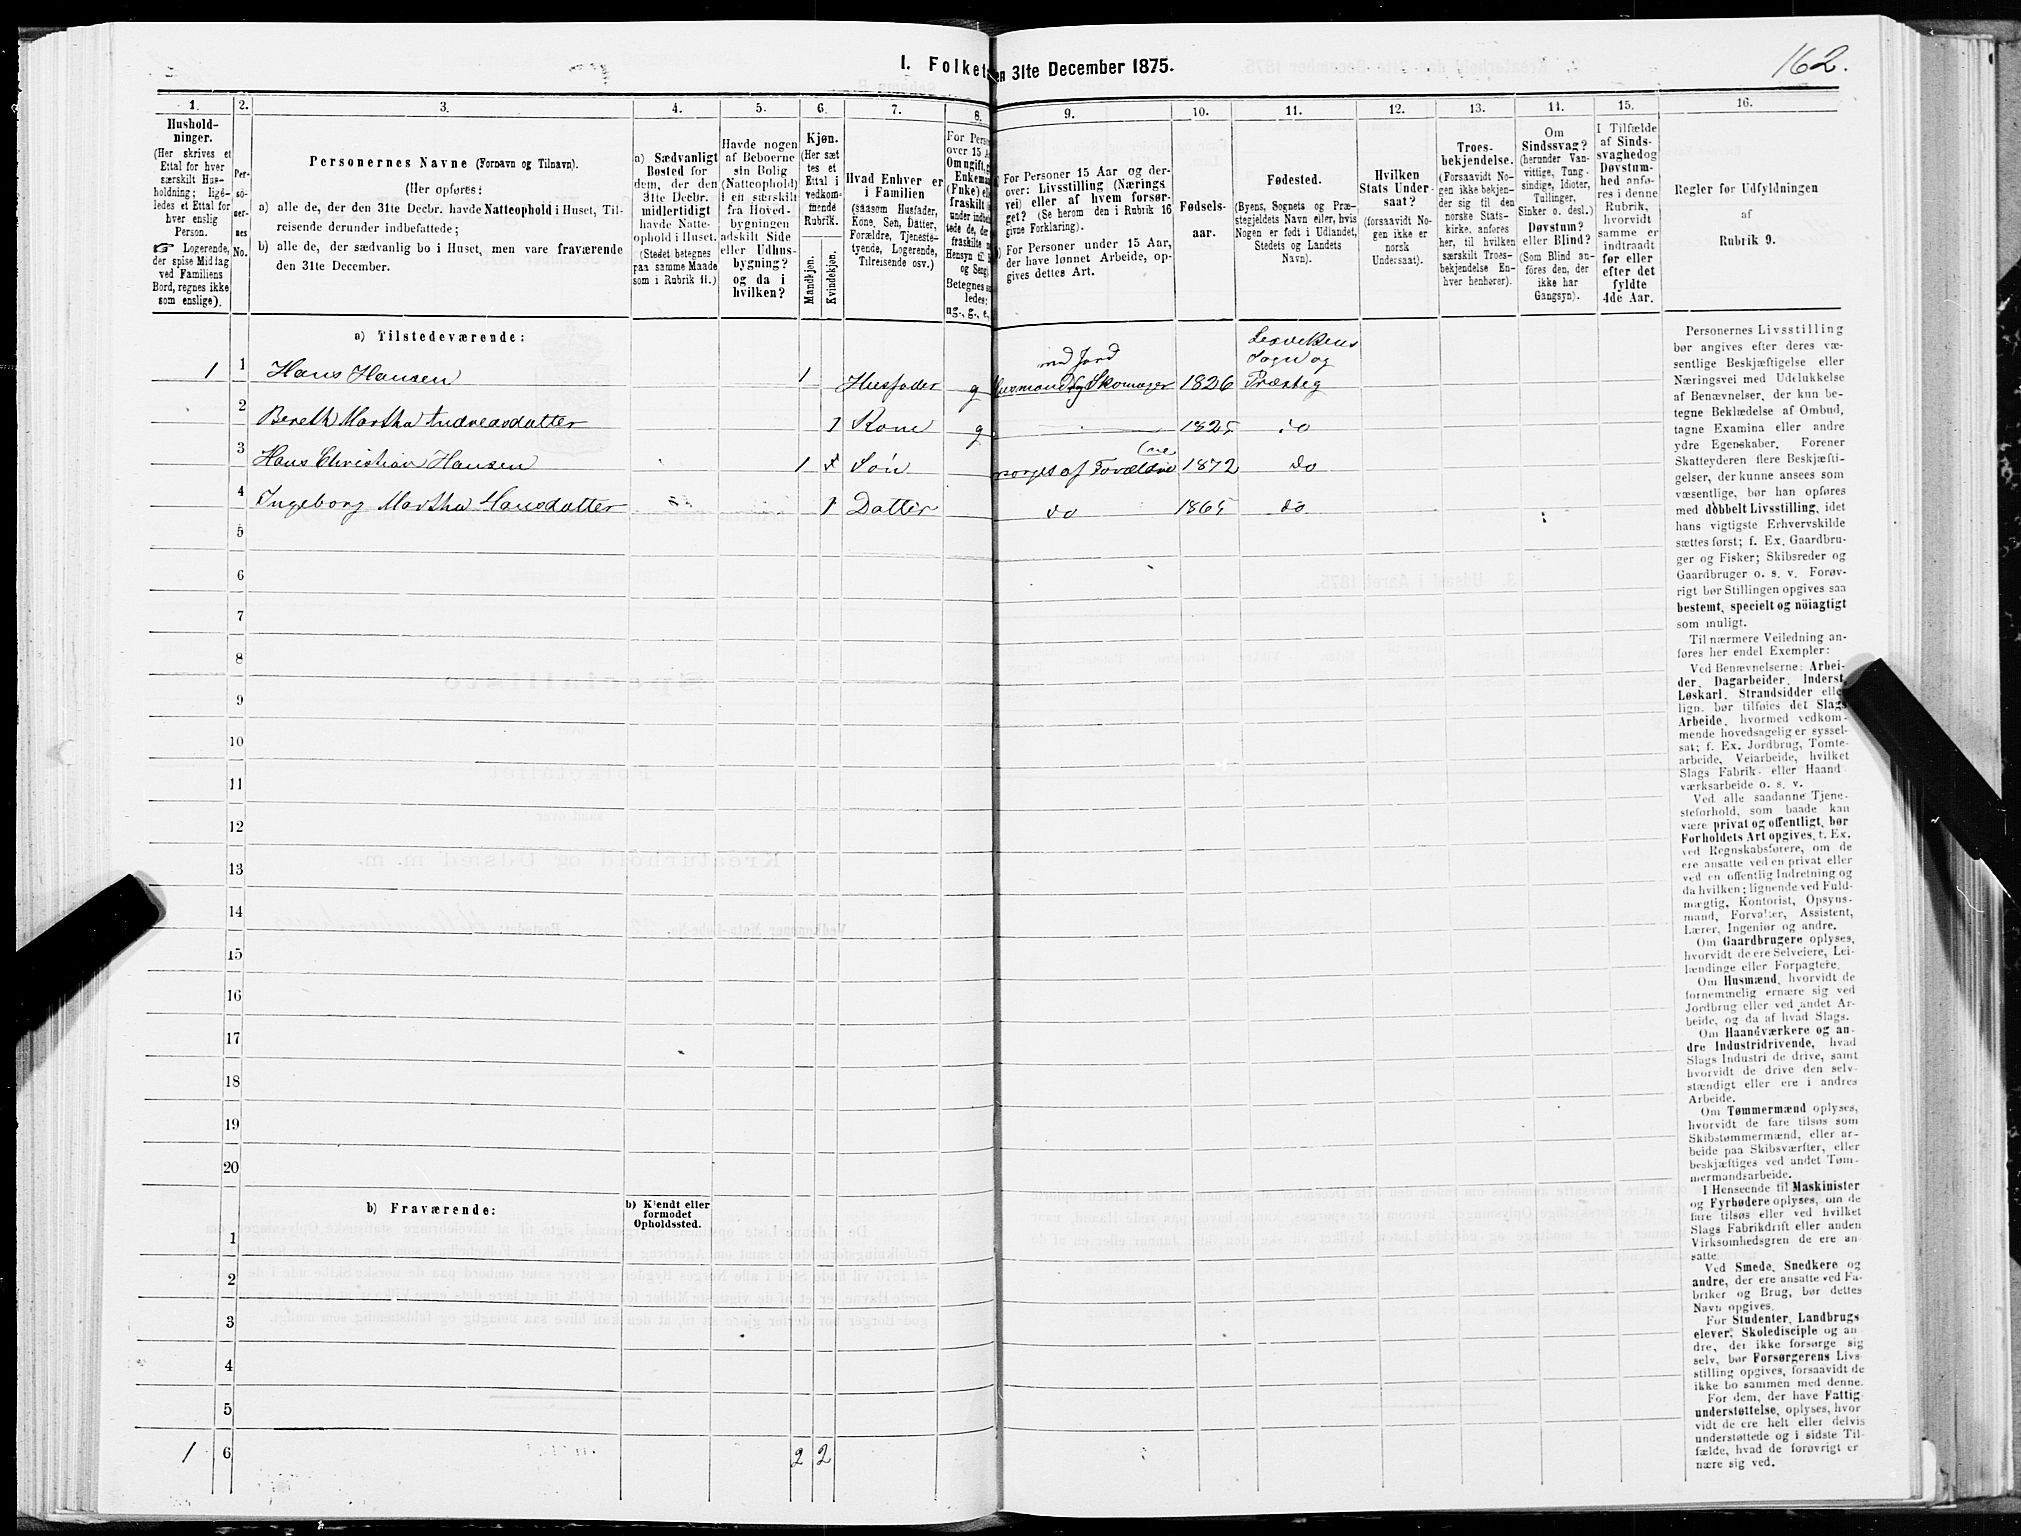 162.
I. Folket
en 31te December 1875.
1. 2. 3. 4. 5. 6. 7. 8. 9. 10. 11. 12. 13. 14. 15. 16.
Hushold-
ninger.
(Her skrives et
Ettal for hver
særskilt Hus-
holdning; lige-
ledes et Ettal for
hver enslig
Person.
☞ Logerende,
der spise Middag
ved Familiens
Bord, regnes ikke
som enslige).
Per-
so-
ner-
nes
No.
Personernes Navne (Fornavn og Tilnavn).
(Her opføres:
a) alle de, der den 31te Decbr. havde Natteophold i Huset, Til-
reisende derunder indbefattede;
b) alle de, der sædvanlig bo i Huset, men vare fraværende
den 31te December.
a) Sædvanligt
Bosted for
dem, der den
31te Decbr.
midlertidigt
havde Natte-
ophold i Huset.
(Stedet betegnes
paa samme Maade
som i Rubrik 11.)
Havde nogen
af Beboerne
sin Bolig
(Natteophold)
i en særskilt
fra Hoved-
bygningen
adskilt Side
eller Udhus-
bygning?
og da i
hvilken?
Kjøn.
(Her sæt-
tes et
Ettal i
vedkom-
mende
Rubrik.
Mandkjøn.
Kvindekjøn.
Hvad Enhver er
i Familien
(saasom Husfader,
Kone, Søn, Datter,
Forældre, Tjeneste-
tyende, Logerende,
Tilreisende osv.)
For Pers
over 15 A
Om ugift, g
Enkema
(Fnke) ell
fraskilt
under indbe
tede de, d
fraskilte
Hensyn til
og Seng
Betegnes s
ledes:
ug., g., e.,
For Personer 15 Aar og der-
over: Livsstilling (Nærings
vei) eller af hvem forsør-
get? (Se herom den i Rubrik 16
givne Forklaring).
For Personer under 15 Aar,
der have lønnet Arbeide, op-
gives dettes Art.
Fødsels-
aar.
Fødested.
(Byens, Sognets og Præ-
stegjeldets Navn eller, hvis
Nogen er født i Udlandet,
Stedets og Landets
Navn).
Hvilken
Stats Under-
saat?
(forsaavidt No-
gen ikke er
norsk
Undersaat).
Troes-
bekjendelse.
(Forsaavidt No-
gen ikke bekjen-
der sig til den
norske Stats-
kirke, anføres
her, til hvilken
særskilt Troes-
bekjendelse En-
hver henhører).
Om
Sindssvag?
(herunder Van-
vittige, Tung-
sindige, Idioter,
Tullinger,
Sinker o. desl.)
Døvstum?
eller Blind?
(Som Blind an-
føres den, der
ikke har
Gangsyn).
I Tilfælde
af Sinds-
svaghed og
Døvstum-
hed anfø-
res i denne
Rubrik,
hvorvidt
samme er
indtraadt
før eller
efter det
fyldte
4de Aar.
Regler før Udfyldningen
af
Rubrik 9.
a) Tilstedeværende:
1 1 Hans Hansen 1 Husfader g Husmand md Jord og Skomager 1826 Lesvikens Sogn og Præsteg
2 Bereth Martha Andreasdatter 1 Kone g 1825 do
3 Hans Christian Hansen 1 Søn rsorges af Forældrene 1872 do
4 Ingeborg Martha Hansdatter 1 Datter do 1865 do
5
6
7
8
9
10
11
12
13
14
15
16
17
18
19
20
b) Fraværende:
b) Kjendt eller
formodet
Opholdssted.
1
2
3
4
5
1 6 2 2
Personernes Livsstilling
bør angives efter deres væ-
sentlige Beskjæftigelse eller
Næringsvei med Udelukkelse
af Benævnelser, der kun be-
tegne Beklædelse af Ombud,
tagne Examina eller andre
ydre Egenskaber. Forener
Skatteyderen flere Beskjæfti-
gelser, der kunne ansees som
væsentlige, bør han opføres
med dobbelt Livsstilling, idet
hans vigtigste Erhvervskilde
sættes først; f. Ex. Gaardbru-
ger og Fisker; Skibsreder og
Gaardbruger o. s. v. Forøv-
rigt bør Stillingen opgives saa
bestemt, specielt og nøiagtigt
som muligt.
Til nærmere Veiledning an-
føres her endel Exempler:
Ved Benævnelserne: Arbei-
der, Dagarbeider, Inderst,
Løskarl, Strandsidder eller
lign. bør tilføies det Slags
Arbeide, hvormed vedkom-
mende hovedsagelig er syssel-
sat; f. Ex. Jordbrug, Tomte-
arbeide, Veiarbeide, hvilket
Slags Fabrik- eller Haand
værksarbeide o. s. v.
Ved alle saadanne Tjene-
steforhold, som baade kan
være privat og offentligt, bør
Forholdets Art opgives, t. Ex.
ved Regnskabsførere, om de
ere ansatte ved en privat eller
ved en offentlig Indretning og
da hvilken; lignende ved Fuld-
mægtig, Kontorist, Opsyns-
mand, Forvalter, Assistent,
Lærer, Ingeniør og andre.
Om Gaardbrugere oplyses,
hvorvidt de ere Selveiere, Lei-
lændinge eller Forpagtere.
Om Husmænd, hvorvidt de
fornemmelig ernære sig ved
Jordbrug eller ved andet Ar-
beide, og da af hvad Slags.
Om Haandværkere og an-
dre Industridrivende, hvad
Slags Industri de drive, samt
hvorvidt de drive den selv-
stændigt eller ere i andres
Arbeide.
Om Tømmermænd oplyses,
hvorvidt de fare tilsøs som
Skibstømmermænd, eller ar-
beide paa Skibsværfter, eller
beskjæftiges ved andet Tøm-
mermandsarbeide.
I Henseende til Maskinister
og Fyrbødere oplyses, om de
fare tilsøs eller ved hvilket
Slags Fabrikdrift eller anden
Virksomhedsgren de ere an-
satte.
Ved Smede, Snedkere og
andre, der ere ansatte ved Fa-
briker og Brug, bør dettes
Navn opgives.
For Studenter, Landbrugs
elever, Skoledisciple og an-
dre, der ikke forsørge sig
selv, bør Forsørgerens Livs-
stilling opgives, forsaavidt de
ikke bo sammen med denne.
For dem, der have Fattig-
understøttelse, oplyses, hvor
vidt de ere helt eller delvis
understøttede og i sidste Til-
fælde, hvad de forøvrigt er
nære sig ved.